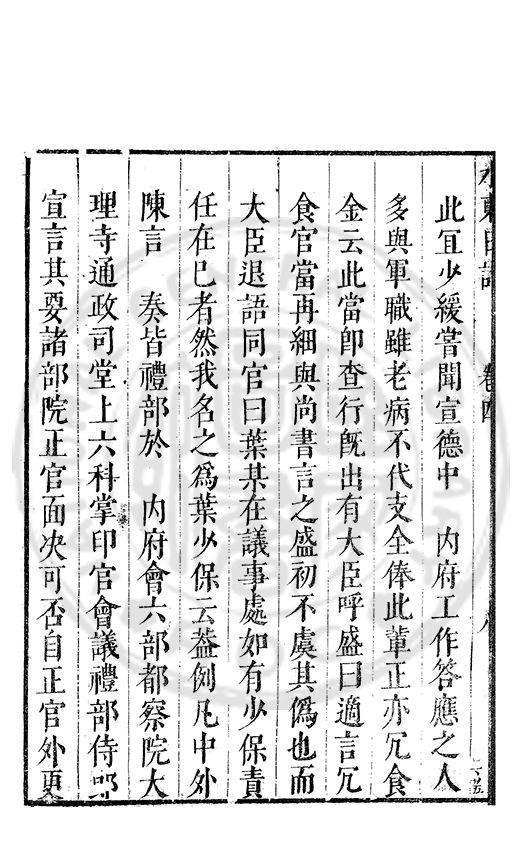 水東日記　卷四　八
此冝少緩嘗聞宣德中　内府工作答應之人
多與軍職雖老病不代支全俸此輩正亦冗食
金云此當卽查行旣出有大臣呼盛曰適言冗
食官當再細與尚書言之盛初不虞其僞也而
大臣退語同官曰葉某在議事處如有少保責
任在已者然我名之爲葉少保云葢例凡中外
陳言　奏皆禮部於　内府會六部都察院大
理寺通政司堂上六科掌印官會議禮部侍郎
宣言其要諸部院正官面决可否自正官外更